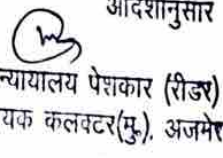 आदेशानुसार
न्यायालय पेशकार (रीडर)
यक कलक्टर(मु.), अजमेर